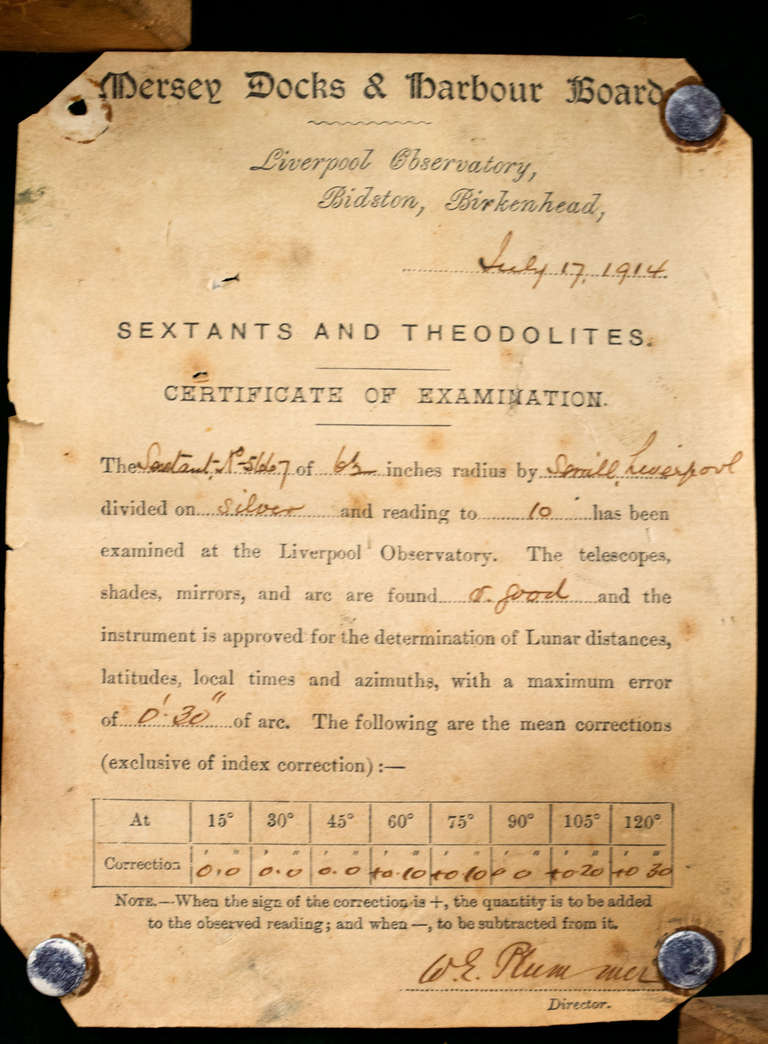 Mersey Docks & Harbour Board
Liverpool Observatory,
Bidston, Birkenhead,
July 17, 1914.
SEXTANTS AND THEODOLITES.
CERTIFICATE OF EXAMINATION.
The Sextant, of inches radius by Liverpool
divided on silver and reading to 10 " has been
examined at the Liverpool Observatory. The telescopes,
shades, mirrors, and arc are found v. good and the
instrument is approved for the determination of Lunar distances,
latitudes, local times and azimuths, with a maximum error
of 0' 30" of arc. The following are the mean corrections
(exclusive of index correction) :—
At 15° 30° 45° 60° 75° 90° 105° 120°
Correction 0. 0 0. 0 0. 0 +0. 10 +0 10 0 0 +0 20 +0 30
NOTE.—When the sign of the correction is +, the quantity is to be added
to the observed reading; and when —, to be subtracted from it.
W. E. Plummer
Director.